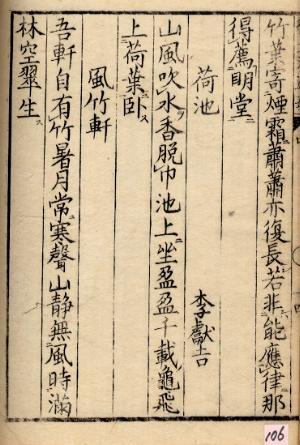 竹葉寄煙霜蕭蕭亦復長若非能應律那
得薦明堂
荷池
李獻吉
山風吹水香脫巾池上坐盈盈千載龜飛
上荷葉臥
風竹軒
吾軒自有竹暑月常寒聲山靜無風時滿
林空翠生
106